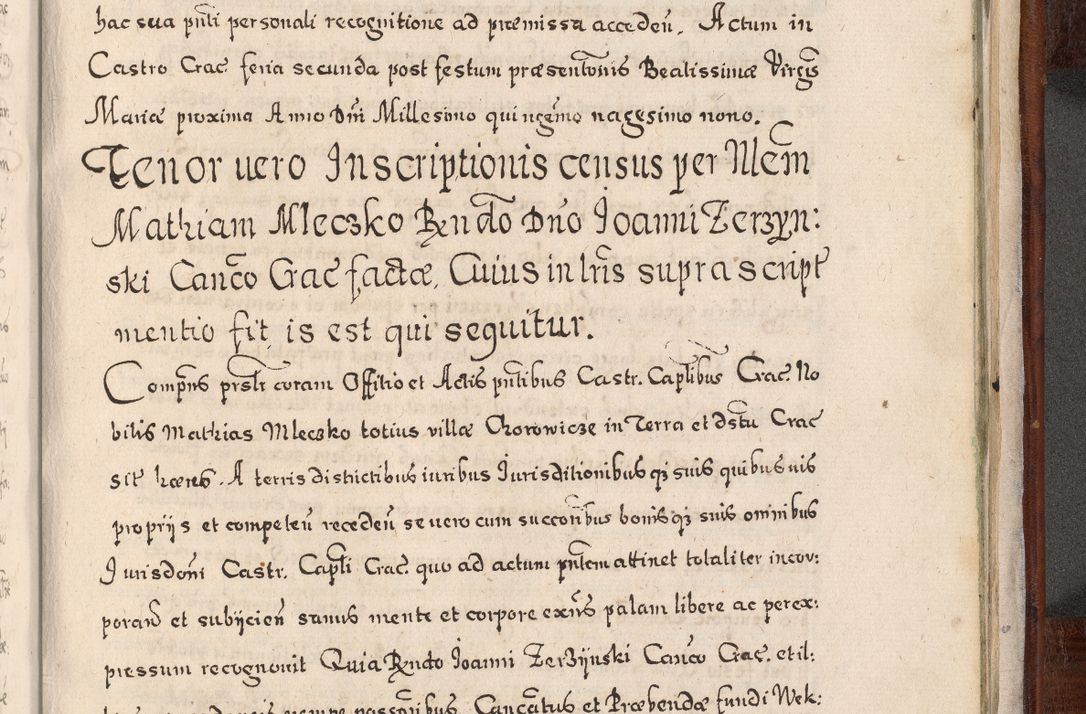 hac sua pñti personali recognitione ad præmissa accedeñ. Actum in
Castro Crac̃ feria secunda post festum præsentõnis Beatissimæ Virgĩs
Mariæ proxima Anno Dñi Millesimo quingẽmo nagesimo nono.
Tenor uero Inscriptionis census per Nlẽm
Mathiam Mleczko Rndo Dño Joanni Zerzyn:
ski Canco Crac̃ factæ, Cuius in lr̃is supra script̃
mentio fit, is est qui seguitur.
Compñs prsl̃r coram Offitio et Actis pñtibus Castr. Caplibus Crac̃. No
bilis Mathias Mleczko totius villæ Chorowicze in Terra et dstũ Crac̃
sit̃ hæres. A terris districtibus iuribus Jurisditionibus q̃ suis quibusuis
proprijs et competeñ recedeñ se uero cum succoribus bonisq̃ suis omnibus
Jurisdoñi Castr. Capli Crac̃. quo ad actum pñtem attinet totaliter incor:
porañ et subijcieñ sanus mente et corpore exñs palam libere ac perex:
pressum recognouit Quia Rndo Joanni Zerzÿnski Canco Crac̃. et il:
nempe possoribus Cancatus et Præbendæ fundi Wek: